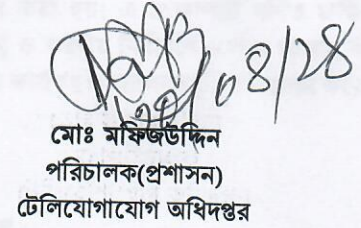 মোঃ মফিজউদ্দিন
পরিচালক(প্রশাসন)
টেলিযোগাযোগ অধিদপ্তর